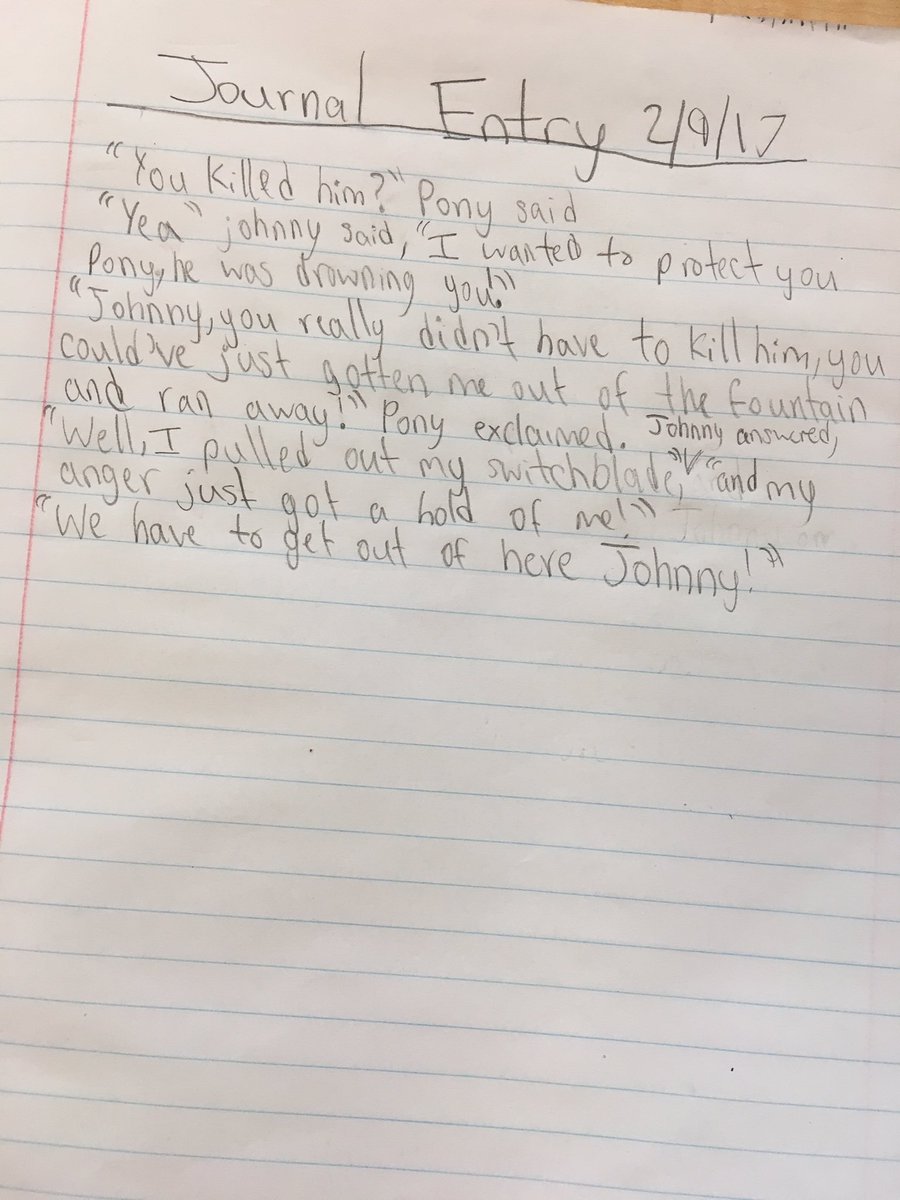 Journal Entry 2/9/17
"You killed him?" Pony said
"Yea" johnny said, "I wanted to protect you
Pony, he was drowning you!"
"Johnny, you really didn't have to kill him, you
could've just gotten me out of the fountain
and ran away!" Pony exclaimed. Johnny answered,
"Well, I pulled out my switchblade," "and my
anger just got a hold of me!"
"We have to get out of here Johnny!"